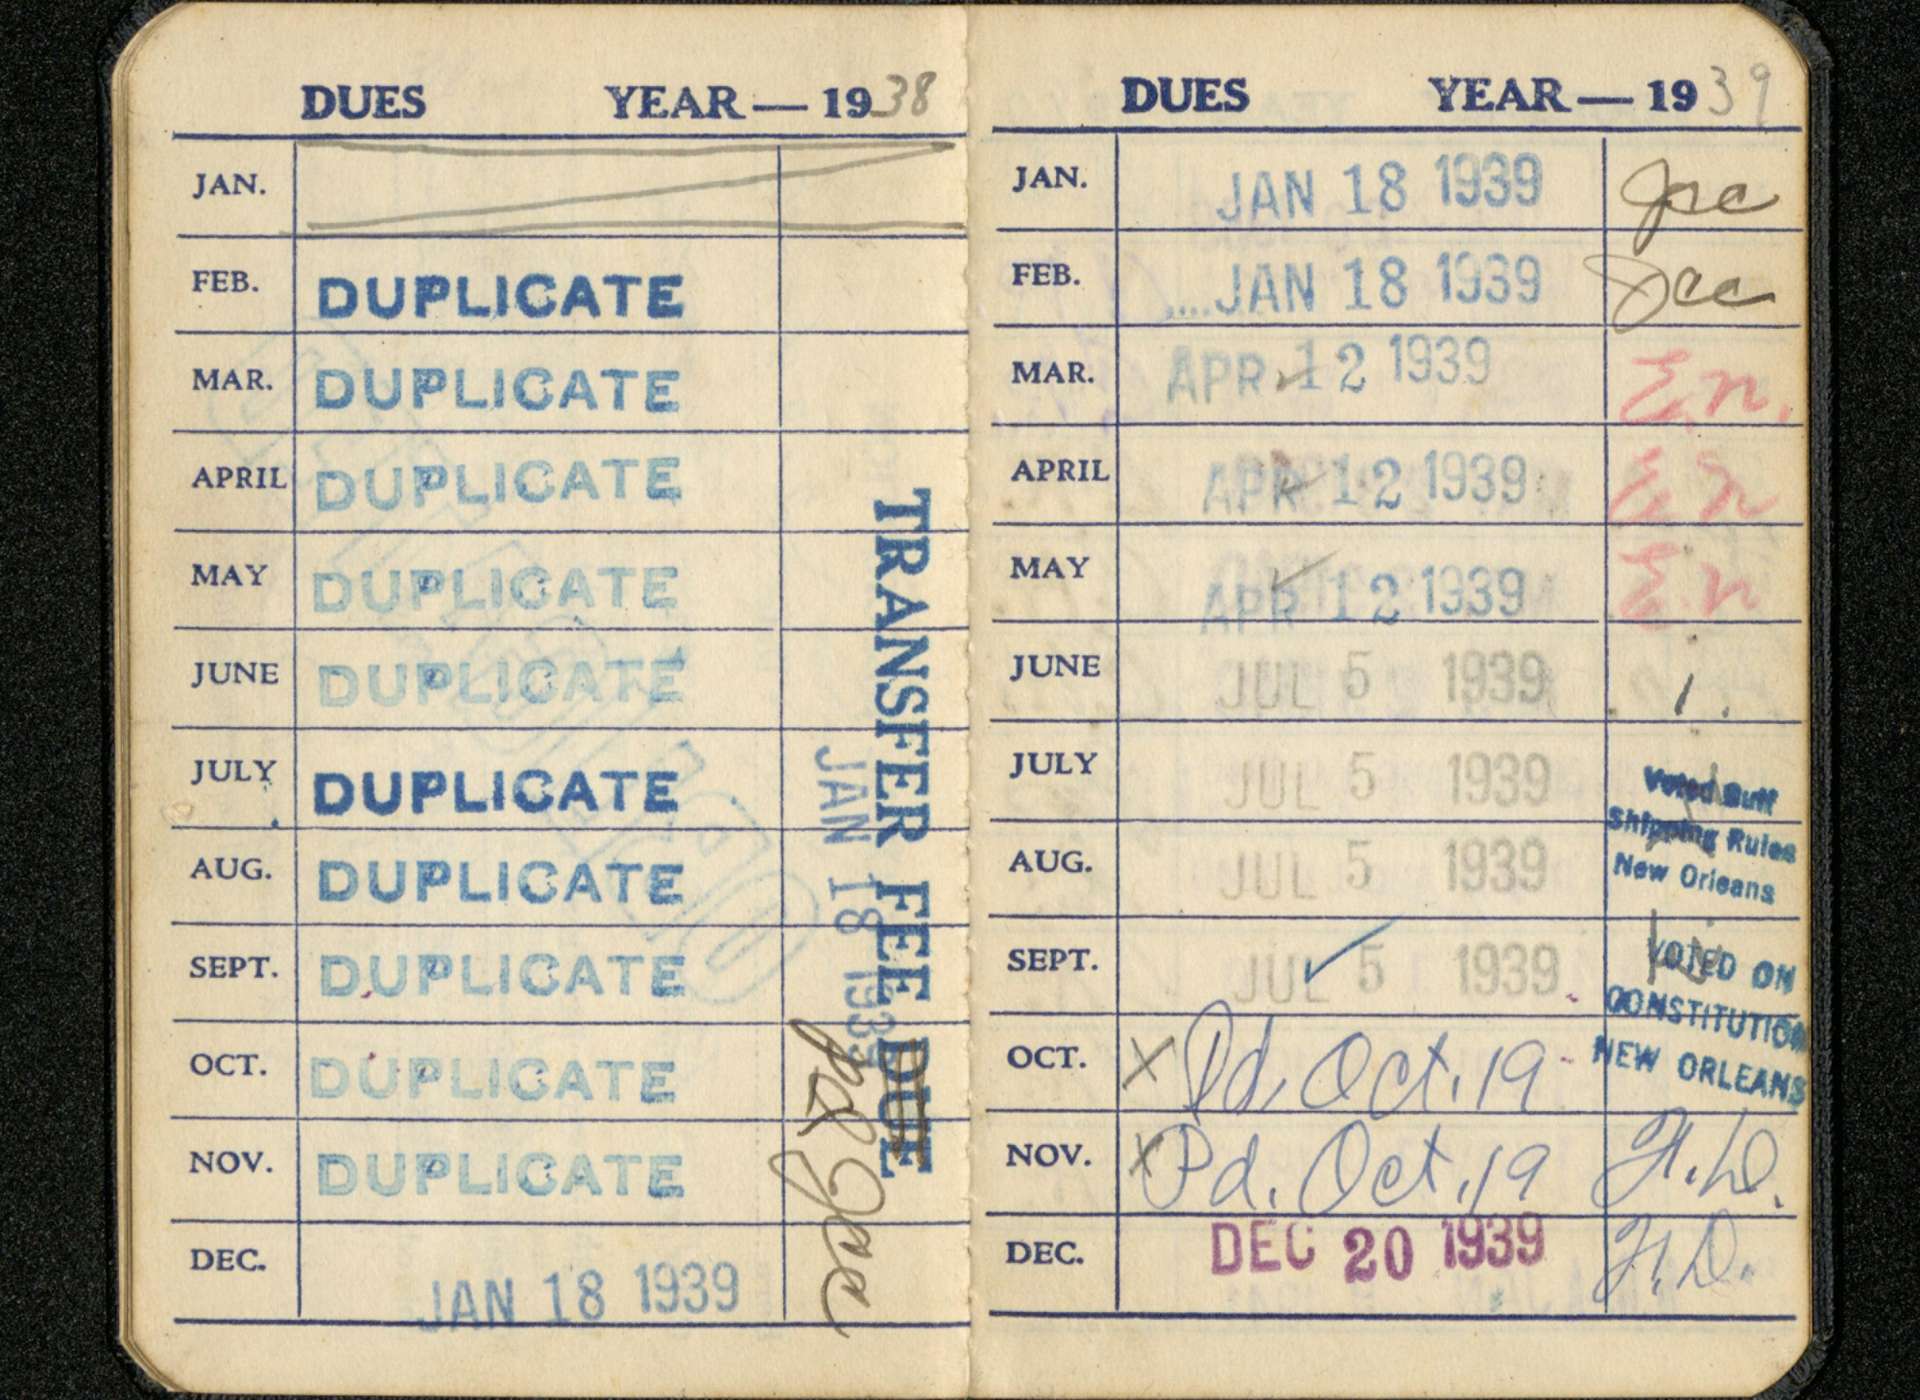 DUES YEAR — 1938
JAN.
FEB. DUPLICATE
MAR. DUPLICATE
APRIL DUPLICATE
MAY DUPLICATE
JUNE DUPLICATE
JULY DUPLICATE
AUG. DUPLICATE
SEPT. DUPLICATE
OCT. DUPLICATE
NOV. DUPLICATE
DEC. JAN 18 1939
TRANSFER FEE DUE
JAN 18 1939
pd
DUES YEAR — 1939
JAN. JAN 18 1939
FEB. JAN 18 1939
MAR. APR 12 1939 E.n.
APRIL APR 12 1939 E.n
MAY APR 12 1939 E.n
JUNE JUL 5 1939
JULY JUL 5 1939
AUG. JUL 5 1939
SEPT. JUL 5 1939
Voted
Shipping Rules
New Orleans
VOTED ON
CONSTITUTION
NEW ORLEANS
OCT. X Pd. Oct. 19
NOV. X Pd. Oct. 19 H.D.
DEC. DEC 20 1939 H.D.